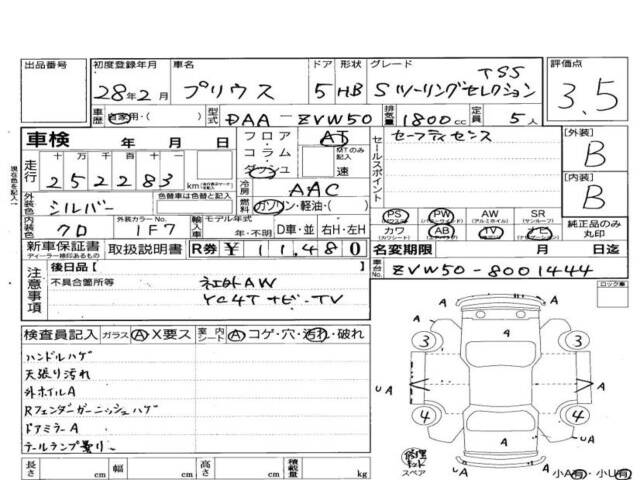 出品番号 初度登録年月 車名 ドア 形状 グレード 評価点
28年2月 プリウス 5 HB Sツーリングセレクション TSS 3.5
車歴 自家用・( ) 型式 DAA-ZVW50 排気量 1800cc 定員 5人
車検 年 月 日 フロア コラム ダッシュ AT MTのみ記入 速 セールスポイント セーフティセンス [外装] B
走行 十 万 千 百 十 一
252283 km
冷房 AAC [内装] B
外装色 シルバー 色替車は色替と記入 燃料 ガソリン・軽油・( )
内装色 クロ 外装カラーNo. 1F7 輸入車 モデル年式 年・不明 D車・並 右H・左H
PS PW AW SR
カワ AB TV ナビ 純正品のみ丸印
新車保証書 取扱説明書 R券 ¥11,480 名変期限 月 日迄
ディーラー捺印あるもの
車台No. ZVW50-8001444
注意事項 後日品[ ]
不具合箇所等
YC4T ナビ・TV
検査員記入 ガラス A X要ス 室内 シート A コゲ・穴・汚れ・破れ
ハンドルハゲ
天張り汚れ
外ホイルA
Rフェンダーガーニッシュハゲ
ドアミラーA
テールランプ曇り
長さ cm 幅 cm 高さ cm 積載量 kg
現在色を記入
ロック車
A
3 A 3
UA A A A UA
4 4
A A A
修理キット
スペア
小A有・小U有